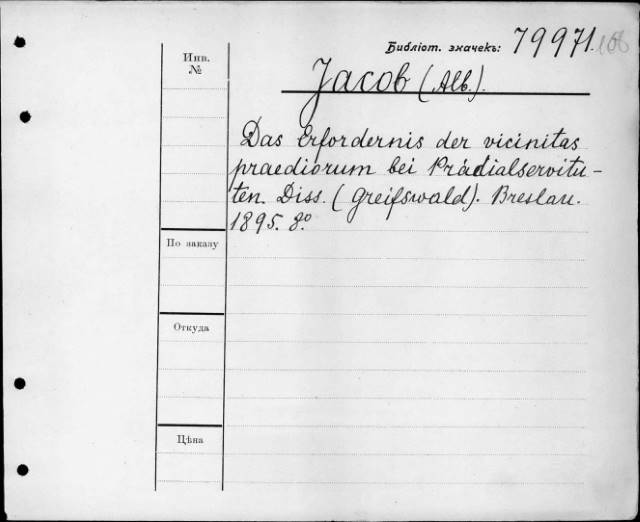 Инв. №
Библіот. значекъ: 79971.
Jacob (Alb.).
Das Erfordernis der vicinitas
praediorum bei Prädialservitu-
ten. Diss. (Greifswald). Breslau.
1895. 8º.
По заказу
Откуда
Цѣна